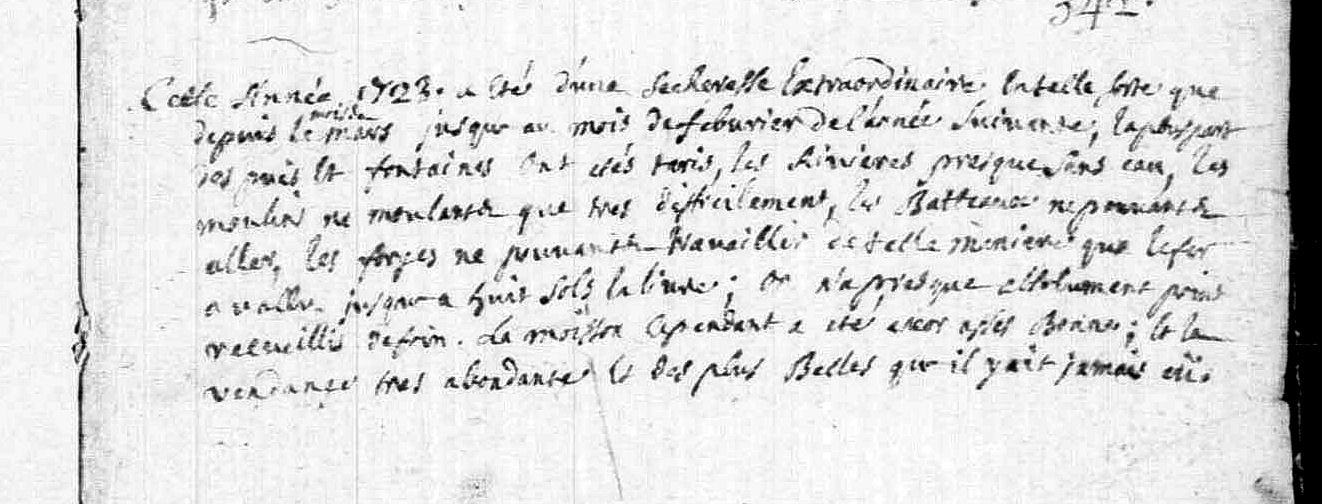 342.
Cette Année 1723. a été d'une secheresse Extraordinaire En telle sorte que
mois de
depuis le mars jusqu'au mois de feburier de l'année suivante, la pluspart
des puis Et fontaines Ont etés taris, les Rivieres presque sans eau, les
moulins ne moulants que tres difficilement, les Batteaux ne pouvants
aller, les forges ne pouvants travaillir de telle meniere que le fer
a vallu jusqu'a huit sols la livre; On n'a presque absolument point
recueillis de foin. La moisson Cependant a eté encor assés Bonne; Et la
vendange tres abondante Et des plus Belles qu'il y ait jamais eü.